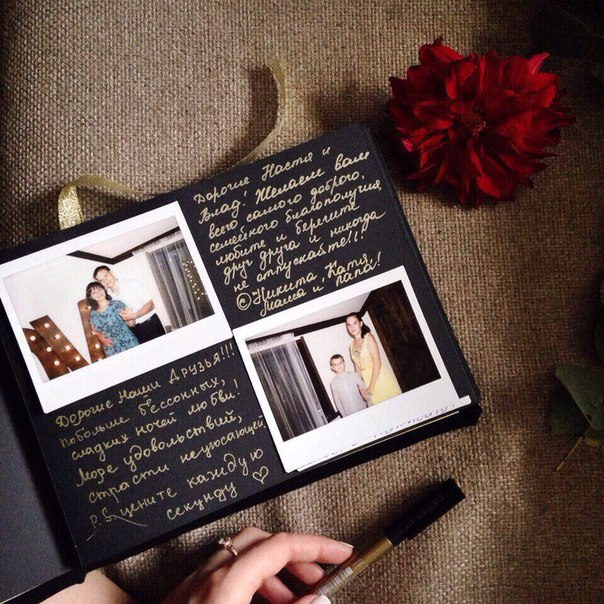 Дорогие Настя и
Влад! Желаем вам
всего самого доброго,
семейного благополучия
любите и берегите
друг друга и никогда
не отпускайте!!!
© Никита, Катя,
мама и папа!
Дорогие Наши Друзья!!!
Побольше бессонных,
сладких ночей любви!
Море удовольствий,
страсти неугасающей,
P.S цените каждую
секунду ♡